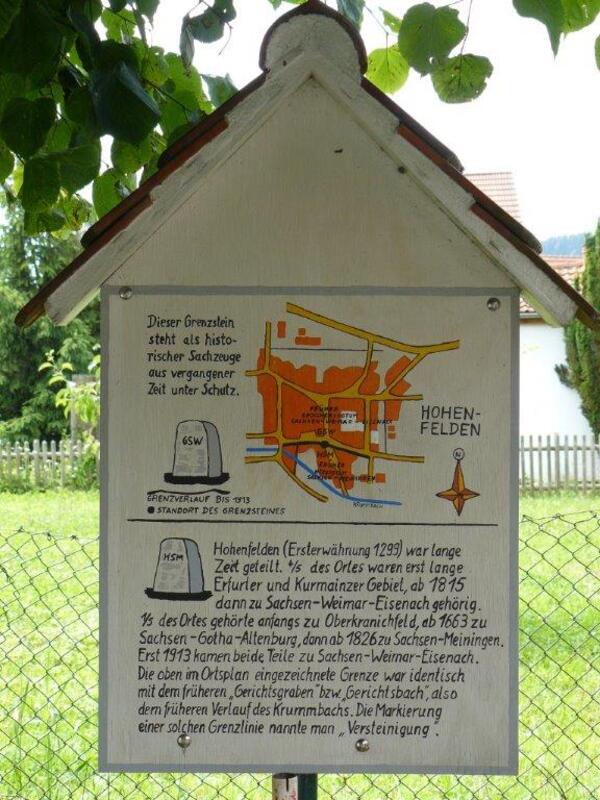 Dieser Grenzstein
steht als histo-
rischer Sachzeuge
aus vergangener
Zeit unter Schutz.
GSW
GRENZVERLAUF BIS 1913
STANDORT DES GRENZSTEINES
FRÜHER
GROSSHERZOGTUM
SACHSEN-WEIMAR-EISENACH
GSW
HSM
FRÜHER
HERZOGTUM
SACHSEN-MEININGEN
KRUMMBACH
HOHEN-
FELDEN
N
HSM
Hohenfelden (Ersterwähnung 1299) war lange
Zeit geteilt. 4/5 des Ortes waren erst lange
Erfurter und Kurmainzer Gebiet, ab 1815
dann zu Sachsen-Weimar-Eisenach gehörig.
1/5 des Ortes gehörte anfangs zu Oberkranichfeld, ab 1663 zu
Sachsen-Gotha-Altenburg, dann ab 1826 zu Sachsen-Meiningen.
Erst 1913 kamen beide Teile zu Sachsen-Weimar-Eisenach.
Die oben im Ortsplan eingezeichnete Grenze war identisch
mit dem früheren „Gerichtsgraben" bzw. „Gerichtsbach", also
dem früheren Verlauf des Krummbachs. Die Markierung
einer solchen Grenzlinie nannte man „Versteinigung".